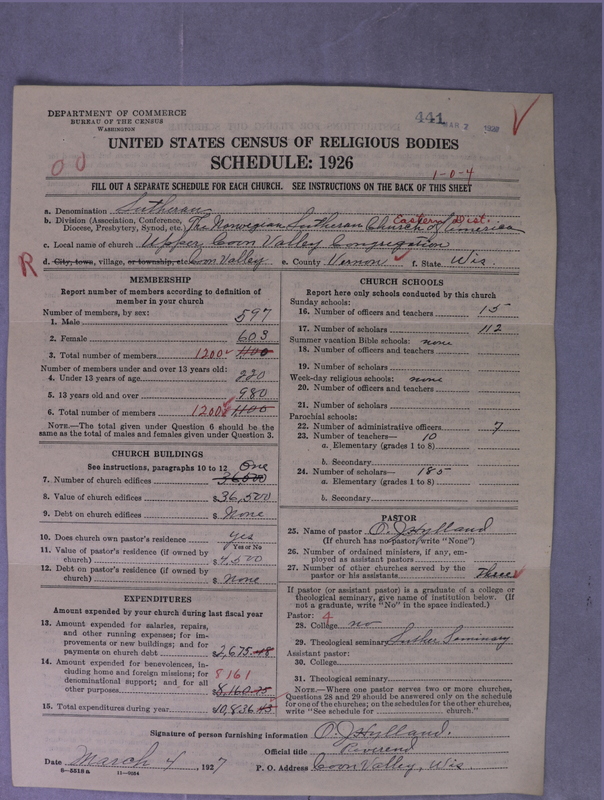 DEPARTMENT OF COMMERCE
BUREAU OF THE CENSUS
WASHINGTON
441
MAR 7
UNITED STATES CENSUS OF RELIGIOUS BODIES
SCHEDULE: 1926
1-0-4
FILL OUT A SEPARATE SCHEDULE FOR EACH CHURCH. SEE INSTRUCTIONS ON THE BACK OF THIS SHEET
a. Denomination Lutheran
Eastern Dist.
b. Division (Association, Conference, Diocese, Presbytery, Synod, etc.) The Norwegian Lutheran Church of America
c. Local name of church Upper Coon Valley Congregation
R
d. City, town, village, or township, etc. Coon Valley e. County Vernon f. State Wis.
MEMBERSHIP
Report number of members according to definition of
member in your church
Number of members, by sex:
1. Male 597
2. Female 603
3. Total number of members 1200 1100
Number of members under and over 13 years old:
4. Under 13 years of age 220
5. 13 years old and over 980
6. Total number of members 1200 1100
NOTE.—The total given under Question 6 should be
the same as the total of males and females given under Question 3.
CHURCH BUILDINGS
See instructions, paragraphs 10 to 12 One
7. Number of church edifices 36,500
8. Value of church edifices $36,500
9. Debt on church edifices $ None
10. Does church own pastor's residence yes
Yes or No
11. Value of pastor's residence (if owned by
church) $
12. Debt on pastor's residence (if owned by
church) $ None
EXPENDITURES
Amount expended by your church during last fiscal year
13. Amount expended for salaries, repairs,
and other running expenses; for im-
provements or new buildings; and for
payments on church debt $2,675.48
14. Amount expended for benevolences, in-
cluding home and foreign missions; for 8161
denominational support; and for all
other purposes $8,160.75
15. Total expenditures during year $10,836
CHURCH SCHOOLS
Report here only schools conducted by this church
Sunday schools:
16. Number of officers and teachers 15
17. Number of scholars 112
Summer vacation Bible schools: none
18. Number of officers and teachers
19. Number of scholars
Week-day religious schools: none
20. Number of officers and teachers
21. Number of scholars
Parochial schools:
22. Number of administrative officers 7
23. Number of teachers— 10
a. Elementary (grades 1 to 8)
b. Secondary
24. Number of scholars— 185
a. Elementary (grades 1 to 8)
b. Secondary
PASTOR
25. Name of pastor O. J. Hylland
(If church has no pastor, write "None")
26. Number of ordained ministers, if any, em-
ployed as assistant pastors
27. Number of other churches served by the
pastor or his assistants Three
If pastor (or assistant pastor) is a graduate of a college or
theological seminary, give name of institution below. (If
not a graduate, write "No" in the space indicated.)
Pastor: 4
28. College no
29. Theological seminary Luther Seminary
Assistant pastor:
30. College
31. Theological seminary
NOTE.—Where one pastor serves two or more churches,
Questions 28 and 29 should be answered only on the schedule
for one of the churches; on the schedules for the other churches,
write "See schedule for ........ church."
Signature of person furnishing information O. J. Hylland.
Official title Reverend
Date March 4, 1927 P. O. Address Coon Valley, Wis.
8-5518a 11-9224